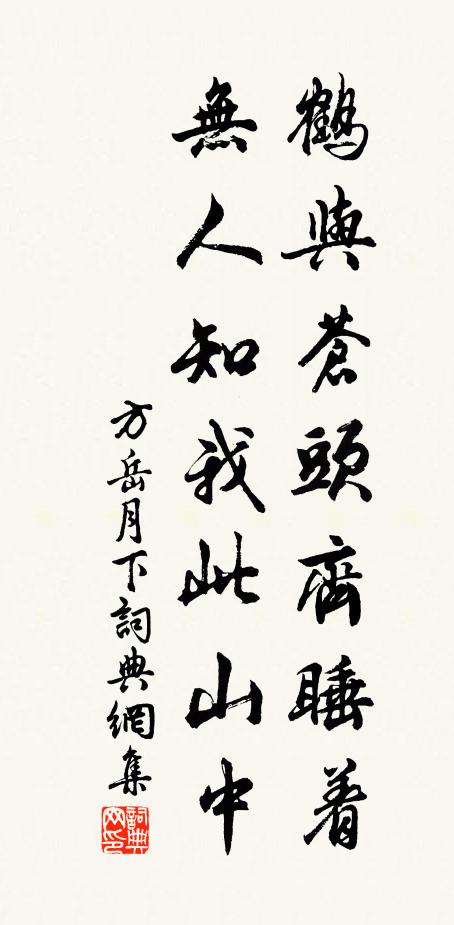 鶴與蒼頭齊睡着
無人知我此山中
方岳月下詞典網集
詞典网印